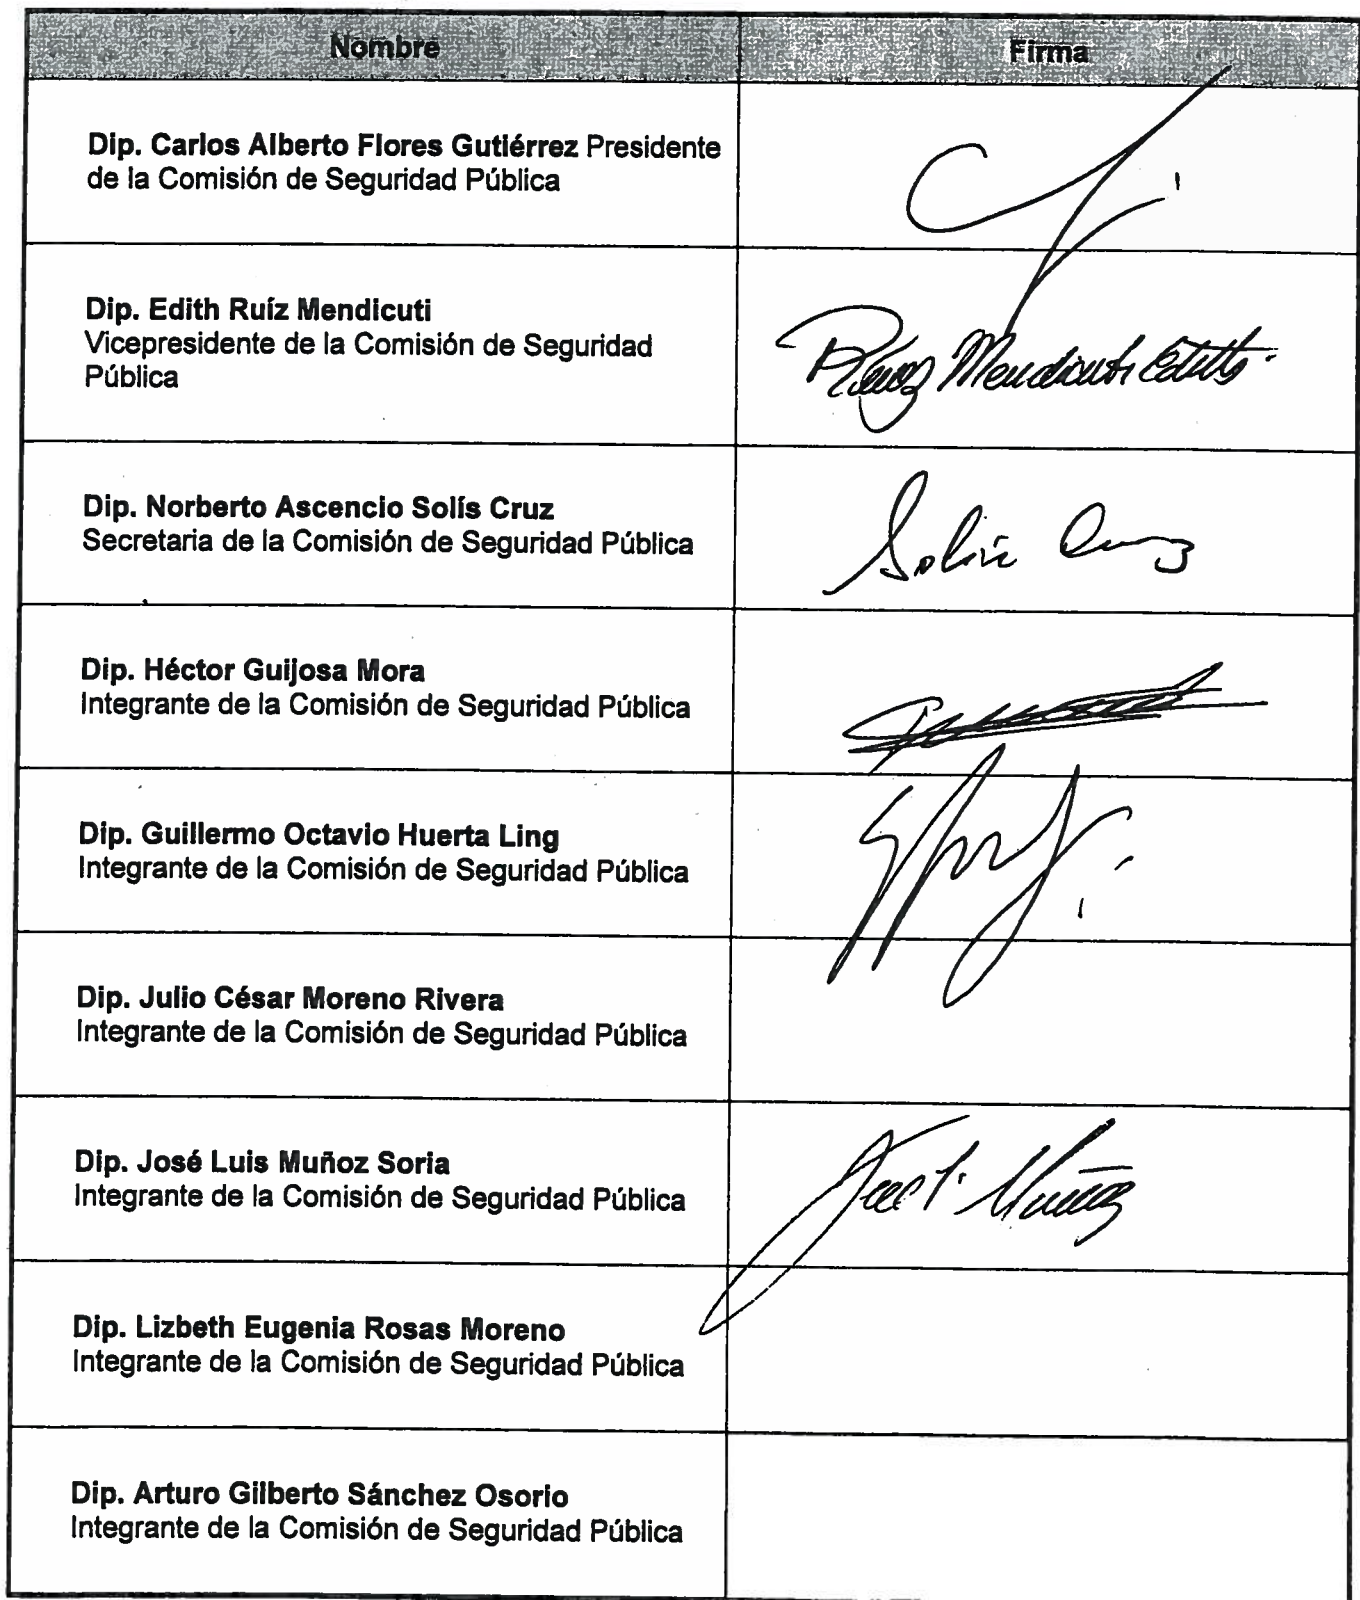 Nombre Firma
Dip. Carlos Alberto Flores Gutiérrez Presidente
de la Comisión de Seguridad Pública
Dip. Edith Ruíz Mendicuti
Vicepresidente de la Comisión de Seguridad
Pública
Ruiz Mendicuti Edith
Dip. Norberto Ascencio Solís Cruz
Secretaria de la Comisión de Seguridad Pública
Solís Cruz
Dip. Héctor Guijosa Mora
Integrante de la Comisión de Seguridad Pública
Dip. Guillermo Octavio Huerta Ling
Integrante de la Comisión de Seguridad Pública
Dip. Julio César Moreno Rivera
Integrante de la Comisión de Seguridad Pública
Dip. José Luis Muñoz Soria
Integrante de la Comisión de Seguridad Pública
José L. Muñoz
Dip. Lizbeth Eugenia Rosas Moreno
Integrante de la Comisión de Seguridad Pública
Dip. Arturo Gilberto Sánchez Osorio
Integrante de la Comisión de Seguridad Pública